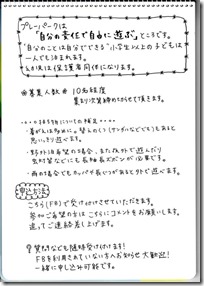 プレーパークは
"自分の責任で自由に遊ぶ"ところです。
"自分のことは自分でできる"小学生以上の子どもは
一人でも泊まれます。
保護者同伴になります。
※募集人数 10名程度
集まり次第締めきらせて頂きます。
持ち物についての補足
・着がえは多めに。替えのくつ(サンダルなどでも)もあると
思いっきり遊べます。
・野外泊希望の場合、また夜外で遊んだり
虫対策などにも長袖長ズボンが必要です。
・雨の場合でもカッパや長ぐつがあると外で遊べます。
申込方法
こちら(FB)で受け付けさせていただきます。
参加ご希望の方はこちらにコメントをお願いします。
追ってご連絡差し上げます。
質問なども随時受け付けます!
FBを利用されていない方もお知らせ大歓迎!
一緒に申し込み可能です。